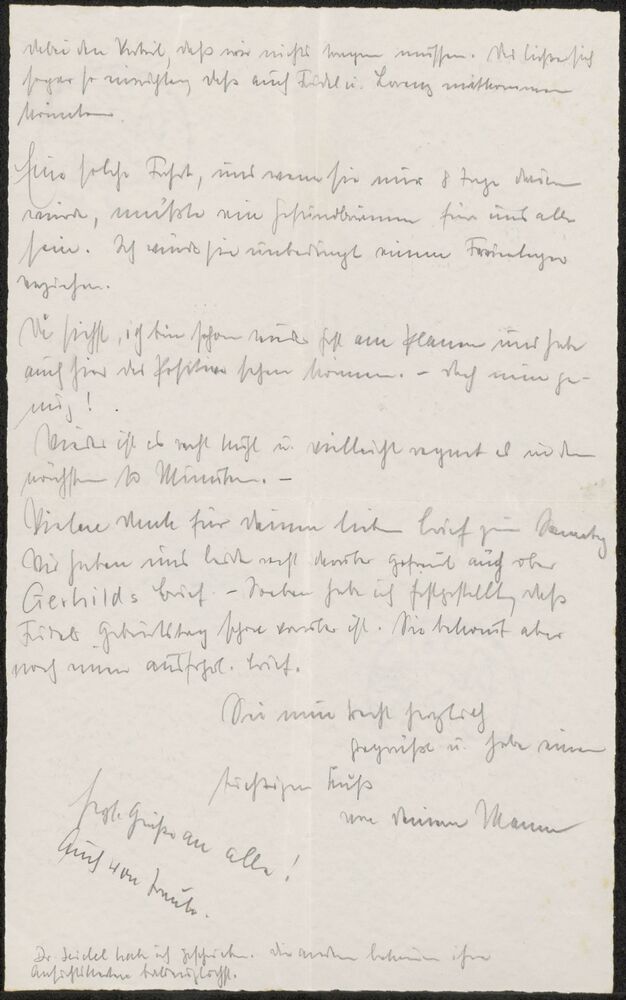 dabei den Vorteil, daß wir nicht tragen müssen. Es ließe sich
sogar so einrichten daß auch Fridel u. Lorenz mitkommen
könnten.
Eine solche Fahrt, und wenn sie nur 8 Tage dauern
würde, müßte ein Gesundbrunnen für uns alle
sein. Ich würde sie unbedingt einem Ferienlager
vorziehen.
Du siehst, ich bin schon wieder fest am Planen und habe
auch hier das Positive sehen können. – Doch nun ge-
nug!
Wieder ist es recht kühl u. vielleicht regnet es in den
nächsten 10 Minuten. –
Vielen Dank für Deinen lieben Brief zum Sonntag
Wir haben uns beide recht darüber gefreut auch über
Gerhilds Brief. – Soeben habe ich festgestellt, daß
Fridels Geburtstag schon vorüber ist. Sie bekommt aber
noch einen ausführl. Brief.
Sei nun recht herzlich
gegrüßt u. habe einen
tüchtigen Kuß
von Deinem Mann
Herzl. Grüße an alle!
Auch von Traute.
Dr. Seidel habe ich geschrieben. Die anderen bekommen ihre
Ansichtskarten baldmöglichst.